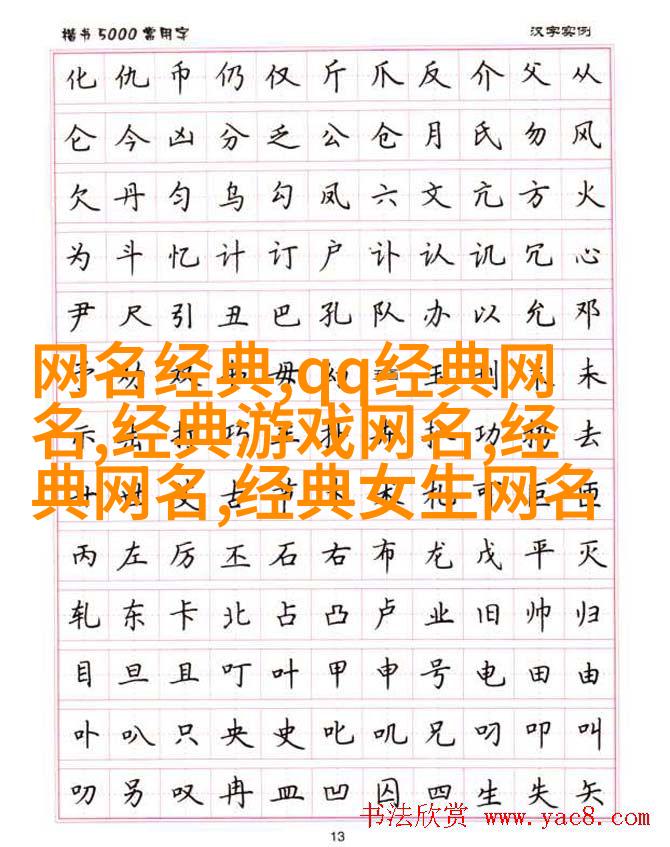 楷书5000常用字 汉字实例
化仇币仍仅斤爪反介父从
仑今凶分乏公仓月氏勿风
欠丹匀乌勾凤六文亢方火
为斗忆计订户讣认讥冗心
尹尺引丑巴孔队办以允邓
网名经典,qq经典网
未
名,经典游戏网名,经
功 去
典网名,经典女生网名
丙左厉丕石右布龙戊平灭
轧东卡北占凸卢业旧帅归
目旦且叮叶甲申号电田由
卟叭只央史叱叽兄叼叩叫
叨另叹冉皿凹囚四生失矢
书法欣赏 www.yac8.com
13